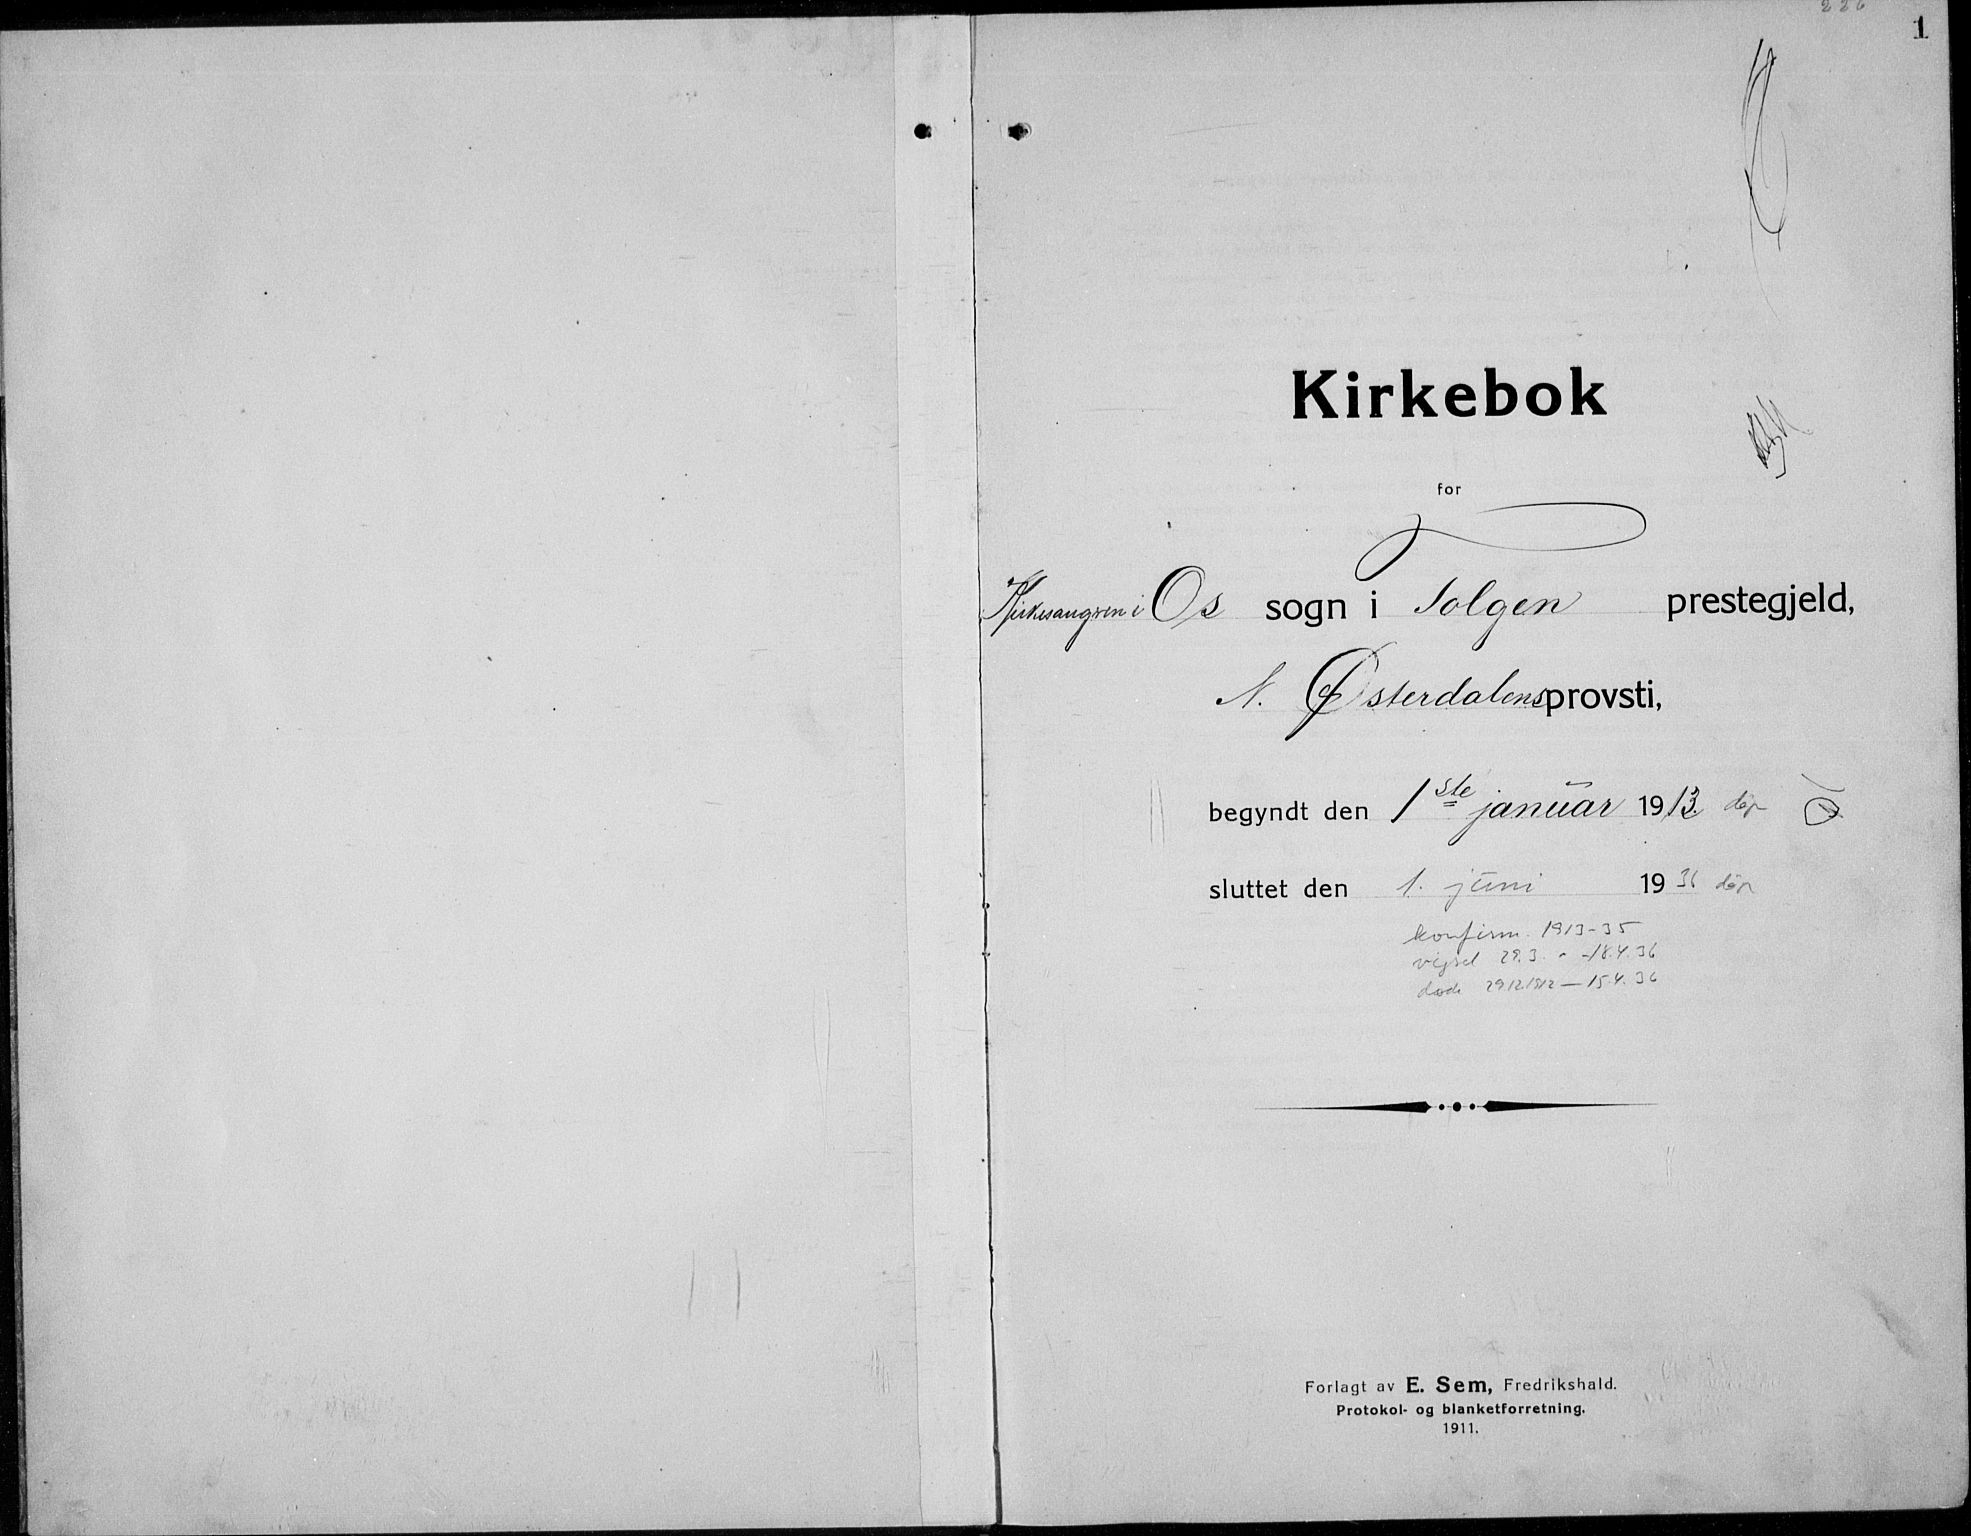 226
1
Kirkebok
for
Kirkesangeren i Os sogn i Tolgen prestegjeld,
N. Østerdalens provsti,
begyndt den 1ste januar 1913. døp
sluttet den 1. juni 1936 døp
konfirm. 1913-35
vigsel 29.3. - 18.4.36
døde 29.12.1912 — 15.4.36
Forlagt av E. Sem, Fredrikshald.
Protokol- og blanketforretning.
1911.